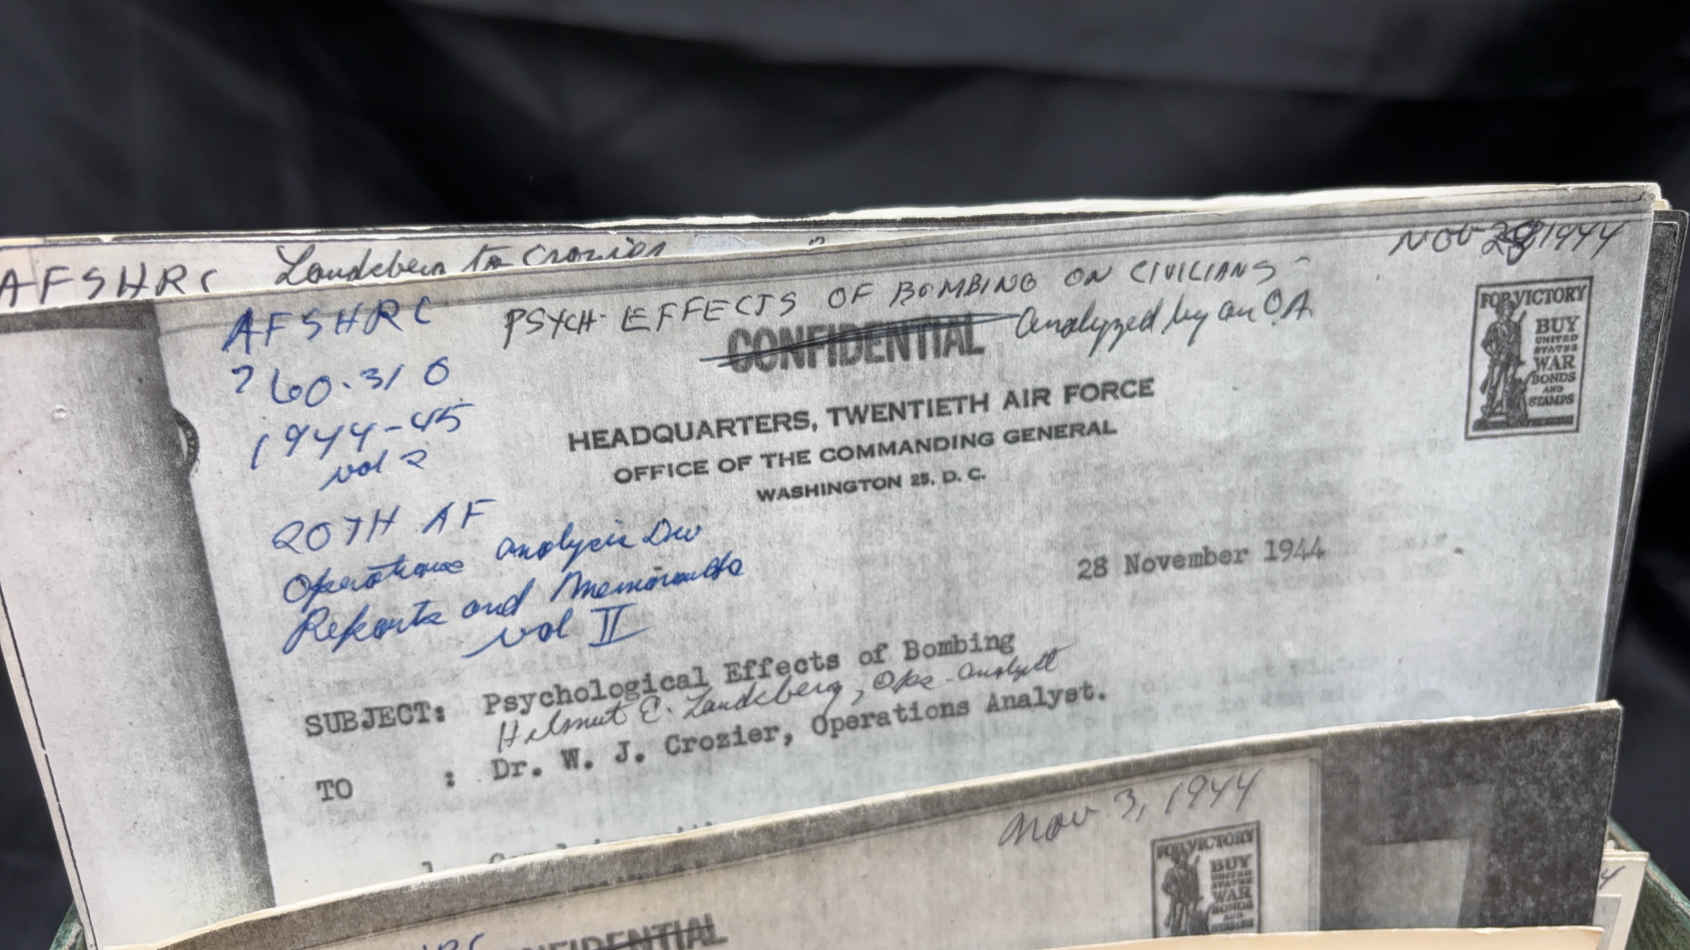 AFSHRC Landsberg to Crozier
Nov 28 1944
AFSHRC
760.310
1944-45
vol 2
20TH AF
Operations analysis Div
Reports and Memoranda
vol II
PSYCH- EFFECTS OF BOMBING ON CIVILIANS -
analyzed by an O.A.
CONFIDENTIAL
HEADQUARTERS, TWENTIETH AIR FORCE
OFFICE OF THE COMMANDING GENERAL
WASHINGTON 25, D. C.
FOR VICTORY
BUY
UNITED
STATES
WAR
BONDS
AND
STAMPS
28 November 1944
SUBJECT: Psychological Effects of Bombing
Helmut E. Landsberg, Ops-analyst
TO : Dr. W. J. Crozier, Operations Analyst.
Nov 3, 1944
FOR VICTORY
BUY
UNITED
STATES
WAR
BONDS
AND
STAMPS
CONFIDENTIAL